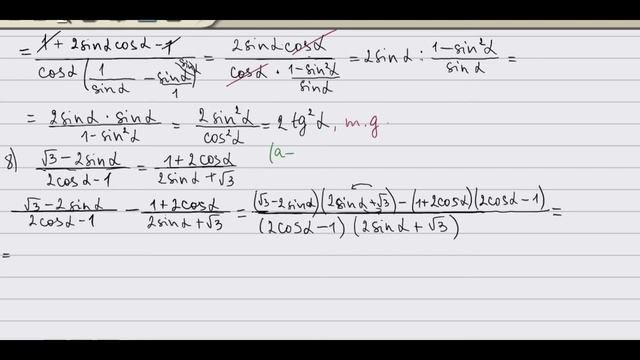 = (1 + 2sinα cosα - 1) / (cosα (1/sinα - sinα/1)) = (2sinα cosα) / (cosα · (1-sin²α)/sinα) = 2sinα : (1-sin²α)/sinα =
= (2sinα · sinα)/(1-sin²α) = (2sin²α)/(cos²α) = 2tg²α, m.g.
8) (√3 - 2sinα)/(2cosα - 1) = (1 + 2cosα)/(2sinα + √3) (a-
(√3 - 2sinα)/(2cosα - 1) - (1 + 2cosα)/(2sinα + √3) = ((√3 - 2sinα)(2sinα + √3) - (1 + 2cosα)(2cosα - 1))/((2cosα - 1)(2sinα + √3)) =
=